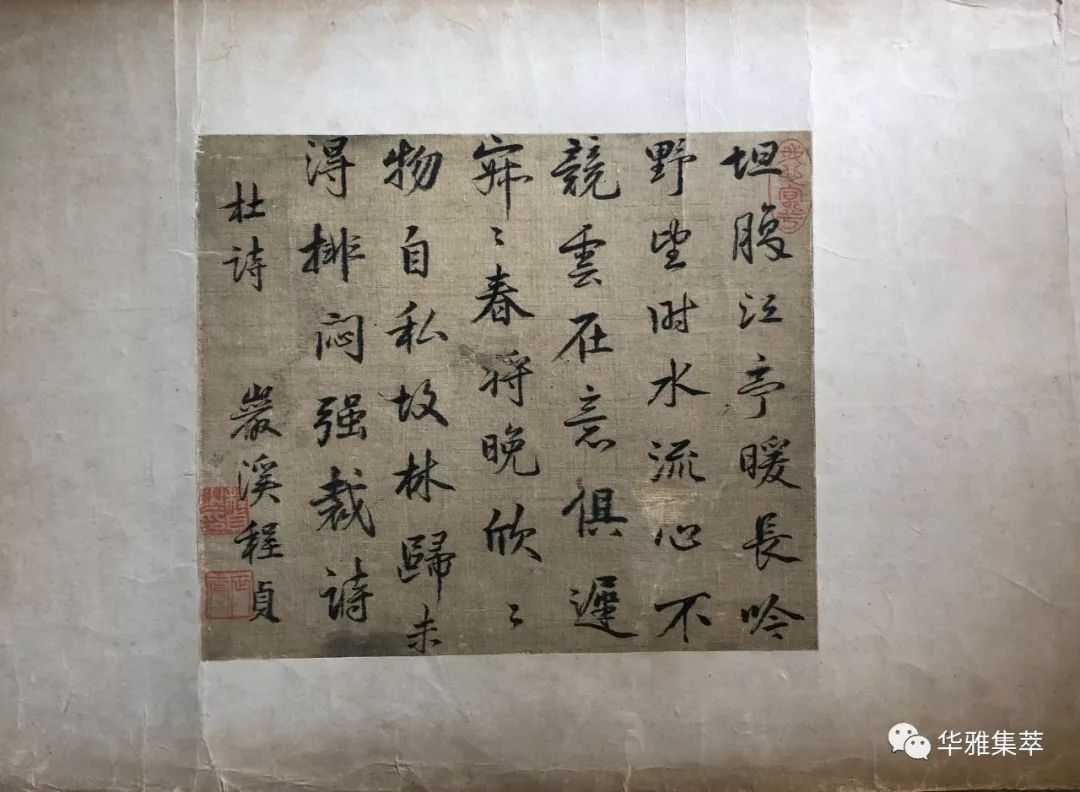 坦腹江亭暖長吟
野望时水流心不
競雲在意俱遲
寂〻春将晚欣〻
物自私故林歸未
淂排闷强裁詩
杜詩
巖溪程貞
华雅集萃